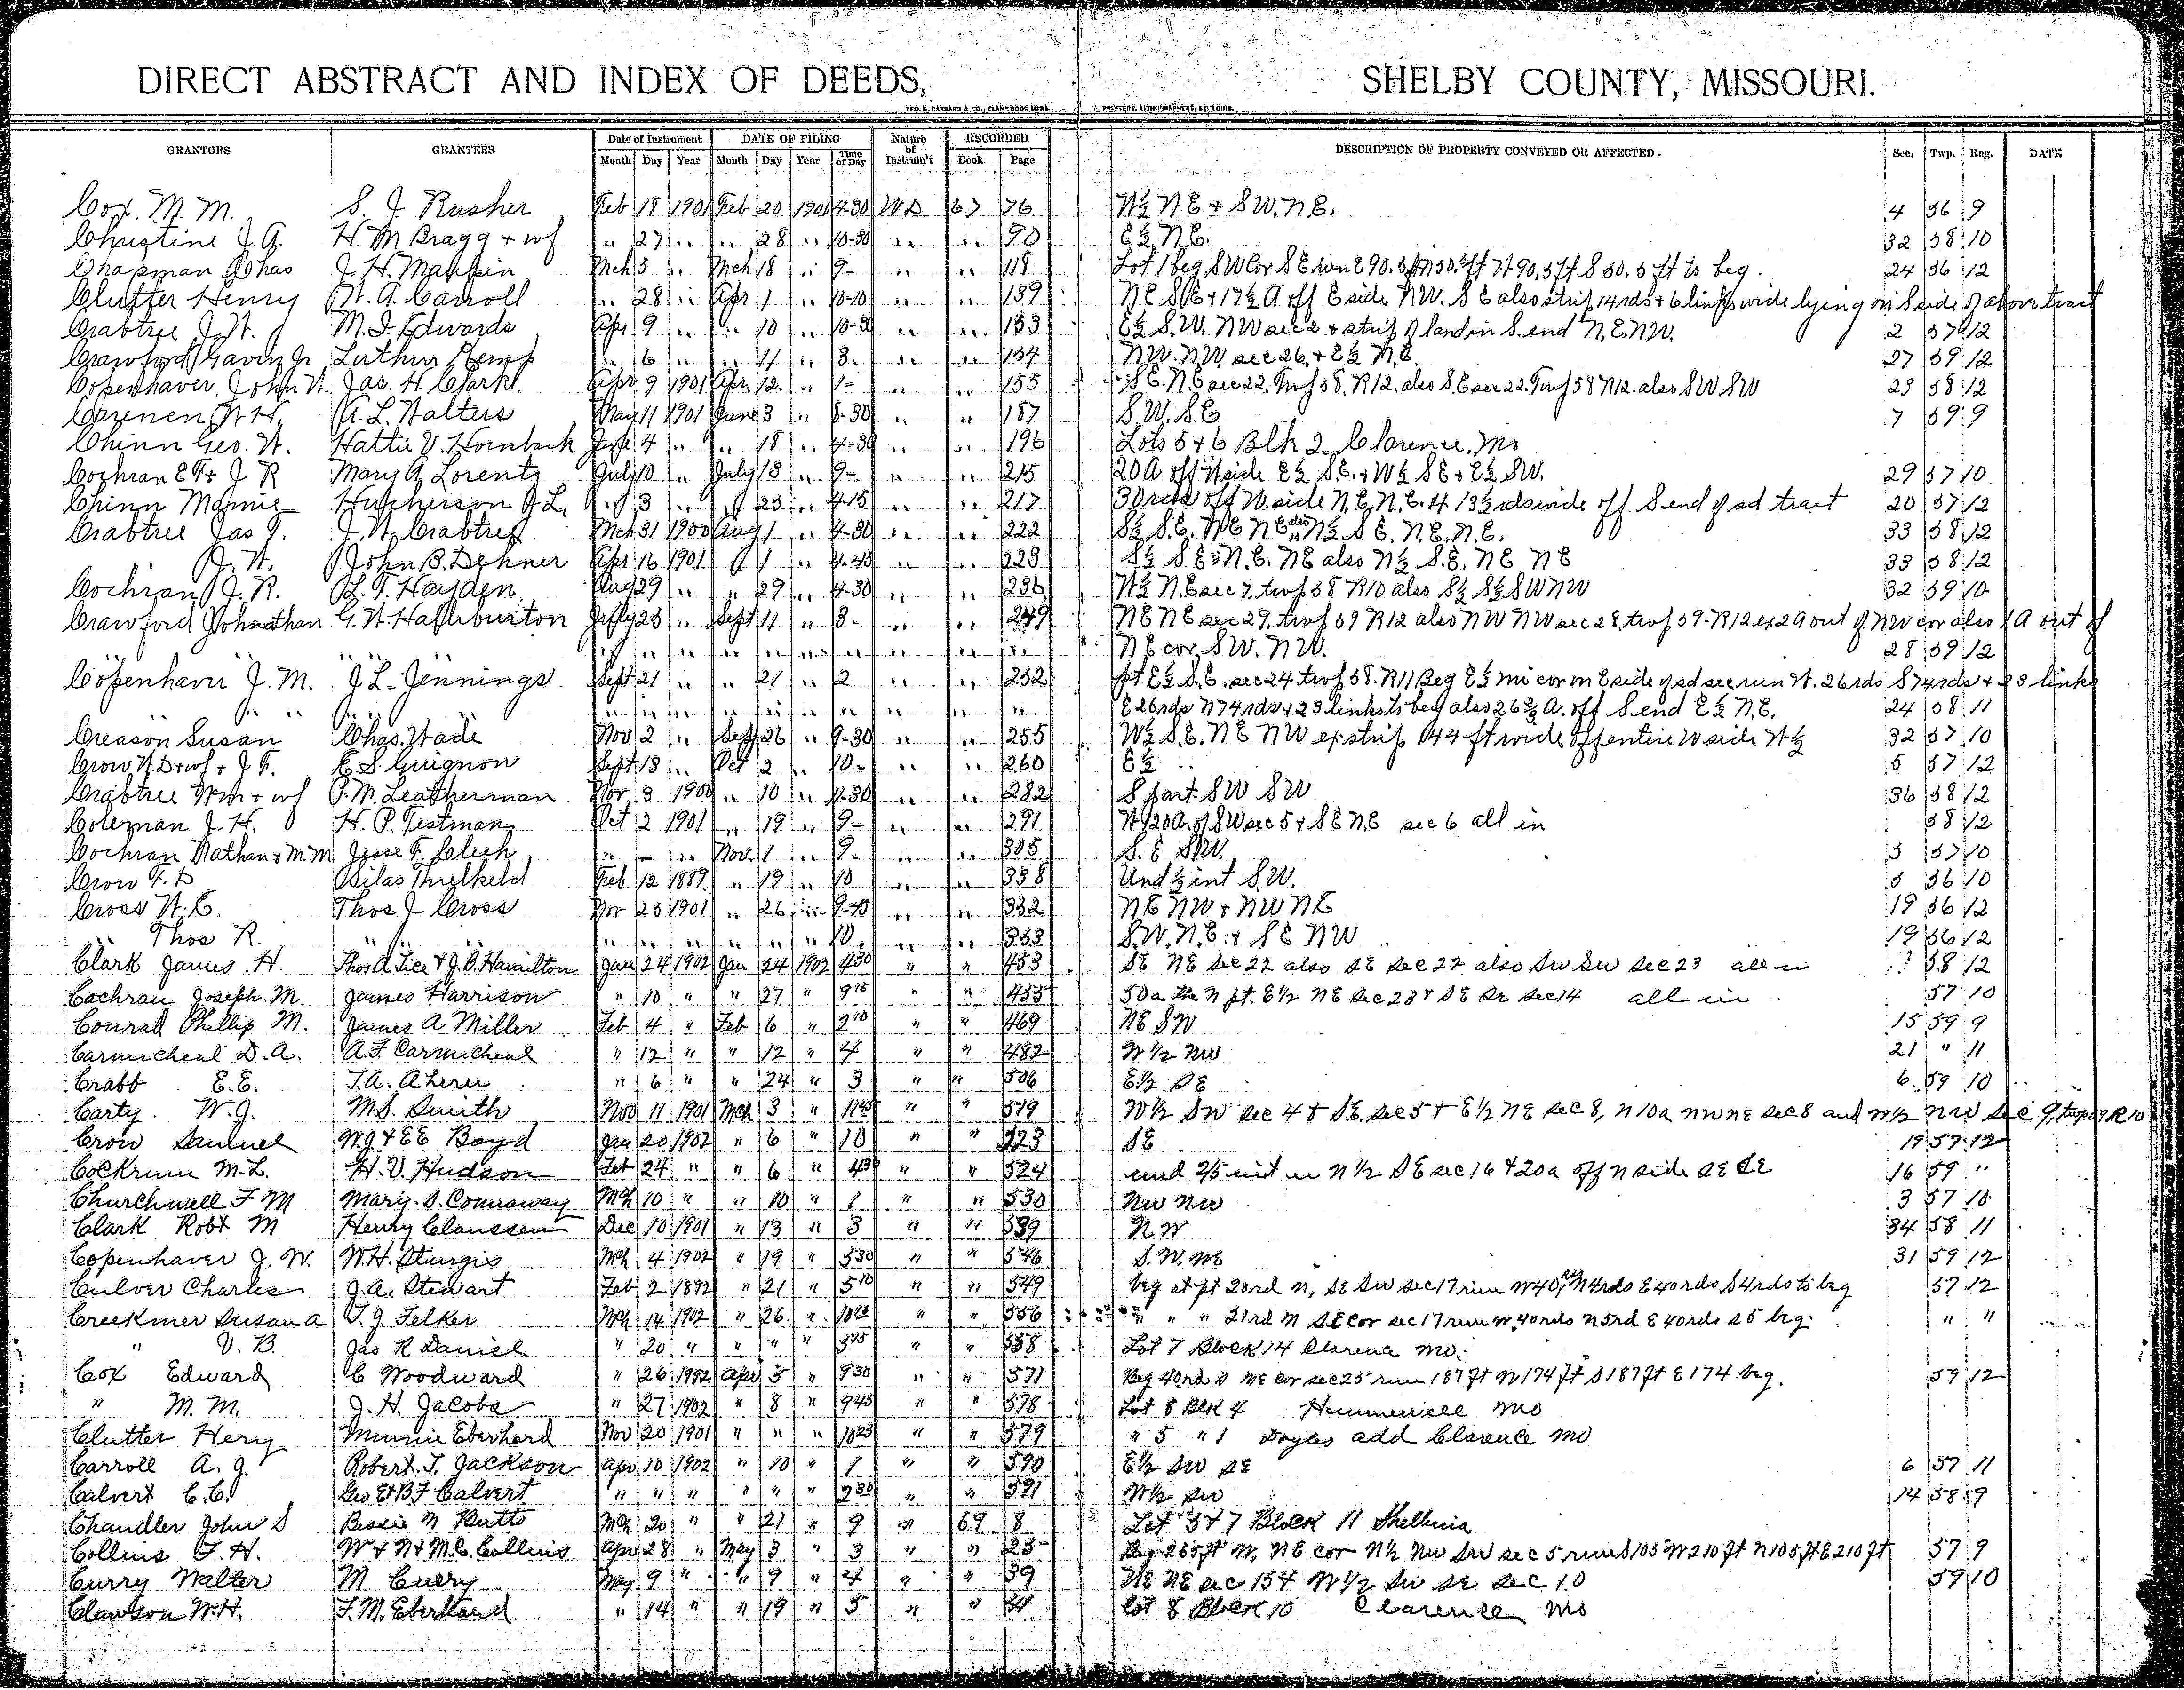 DIRECT ABSTRACT AND INDEX OF DEEDS, SHELBY COUNTY, MISSOURI.
GEO. D. BARNARD & CO., BLANK BOOK MFRS. PRINTERS, LITHOGRAPHERS, ST. LOUIS.
GRANTORS GRANTEES Date of Instrument DATE OF FILING Nature of Instrum't RECORDED DESCRIPTION OF PROPERTY CONVEYED OR AFFECTED. Sec. Twp. Rng. DATE
Month Day Year Month Day Year Time of Day Book Page
Cox, M. M. S. J. Rusher Feb 18 1901 Feb 20 1901 4-30 WD 67 76 W½ NE + SW. N.E. 4 56 9
Christine J. A. H. M Bragg + wf " 27 " " 28 " 10-30 " " 90 E½ N.E. 32 58 10
Chapman Chas J. H. Maupin Mch 5 " Mch 18 " 9- " " 118 Lot 1 beg SW Cor S E run E 90.5 ft N 50.5 ft W 90.5 ft S 50.5 ft to beg. 24 56 12
Clutter Henry W. A. Carroll " 28 " Apr 1 " 10-10 " " 139 NE SE + 17½ A. off E side NW. S E also strip 14 rds + 6 links wide lying on S side of above tract
Crabtree J. W. M. I. Edwards Apr 9 " " 10 " 10-30 " " 153 E½ S.W. NW sec 2 + strip of land in S. end N.E. NW. 2 57 12
Crawford Gavin Jr Luther Kemp " 6 " " 11 " 8- " " 154 NW. NW sec 26 + E½ N.E. 27 59 12
Copenhaver John W. Jas. H. Clark Apr 9 1901 Apr 12 " 1- " " 155 S E. N E sec 22 Twp 58, R12. also S.E sec 22 Twp 58 R12 also SW SW 23 58 12
W. H. A. L. Walters May 11 1901 June 3 " 8-30 " " 187 S.W. S.E 7 59 9
Chinn Geo. W. Hattie V. Hornback June 4 " " 18 " 4-30 " " 196 Lots 5 + 6 Blk 2 Clarence, Mo
Cochran E F + J R Mary A Lorentz July 10 " July 18 " 9- " " 215 20 A off W side E½ S.E. + W½ SE + E½ SW. 29 57 10
Chinn Mamie Hutcherson J. L. " 3 " " 23 " 4-15 " " 217 30 rds off W side N.E. N.E. + 13½ rds wide off S end of sd tract 20 57 12
Crabtree Jas T. J. W. Crabtree Mch 31 1900 Aug 1 " 4-30 " " 222 S½ S.E. NE NE also N½ S E. N.E. N.E. 33 58 12
" J. W. John B. Dehner Apr 16 1901 " 1 " 4-45 " " 223 S½ S.E. N.E. NE also N½ S.E. NE NE 33 58 12
Cochran J. R. L. F. Hayden Aug 29 " " 29 " 4-30 " " 236 W½ N.E sec 7 twp 58 R10 also S½ S½ SW NW 32 59 10
Crawford Johnathan G. W. Halliburton July 25 " Sept 11 " 8- " " 249 NE NE sec 29. twp 59 R12 also NW NW sec 28, twp 59-R12 ex 2 A out of NW cor also 1 A out of
" " " " " " " " " " " NE cor. SW. NW. 28 59 12
Copenhaver J. M. J L. Jennings Sept 21 " " 21 " 2 " " 252 pt E½ S.E. sec 24 twp 58. R11 Beg E½ mi cor on E side of sd sec run W. 26 rds S 74 rds + 23 links
" " " " " " " " " " " E 26 rds N 74 rds + 23 links to beg also 26⅔ A. off S end E½ N.E. 24 58 11
Creason Susan Chas. Wade Nov 2 " Sept 26 " 9-30 " " 255 W½ S.E. NE NW ex strip 144 ft wide off entire W side W½ 32 57 10
Crow W. D + wf + J F. E. S. Guignon Sept 13 " Oct 2 " 10- " " 260 E½ 5 57 12
Crabtree Wm + wf P. M. Leatherman Nov 3 1900 " 10 " 11-30 " " 282 S part SW SW 36 58 12
Coleman J. H. H. P. Testman Oct 2 1901 " 19 " 9- " " 291 W 120 A. of SW sec 5 + S E N.E sec 6 all in 58 12
Cochran Nathan + M. M Jesse F. Cleek " - " Nov 1 " 9- " " 305 S. E SW. 3 57 10
Crow F. D Silas Threlkeld Feb 12 1889 " 19 " 10 " " 338 Und ½ int S.W. 5 56 10
Cross W. E. Thos J Cross Nov 23 1901 " 26 " 9-45 " " 352 NE NW + NW NE 19 56 12
" Thos R. " " " " " " " 10 " " 353 S.W. N.E. + S E NW 19 56 12
Clark James H. Thos A. Tice & J. B. Hamilton Jan 24 1902 Jan 24 1902 4 30 " " 453 SE NE Sec 22 also SE Sec 22 also SW SW Sec 23 all in 58 12
Cochran Joseph M. James Harrison " 10 " " 27 " 9 15 " " 455 50 a N pt. E½ NE Sec 23 & SE Sec 14 all in 57 10
Conrad Phillip M. James A Miller Feb 4 " Feb 6 " 2 10 " " 469 NE SW 15 59 9
Carmicheal D. A. A. F Carmicheal " 12 " " 12 " 4 " " 482 W ½ NW 21 " 11
Crabb E. E. T. A. Ahern " 6 " " 24 " 3 " " 506 E½ SE 6 59 10
Carty W. J. M. S. Smith Nov 11 1901 Mch 3 " 11 45 " " 519 W½ SW Sec 4 & SE, sec 5 + E½ NE sec 8, N 10 a NW NE sec 8 and W½ NW Sec 9, twp 59 R 10
Crow Samuel W. J & E E Boyd Jan 20 1902 " 6 " 10 " " 523 SE 19 57 12
Cockrum M. L. H. V. Hudson Feb 24 " " 6 " 4 30 " " 524 und 2/5 int in N½ SE sec 16 & 20 a off N side SE SE 16 59 "
Churchwell F M Mary S. Connaway Mch 10 " " 10 " 1 " " 530 NW NW 3 57 10
Clark Robt M Henry Claussen Dec 10 1901 " 13 " 3 " " 539 N W 34 58 11
Copenhaver J. W. W. H. Sturgis Mch 4 1902 " 19 " 5 30 " " 546 S. W. NE 31 59 12
Culver Charles J. A. Stewart Feb 2 1892 " 21 " 5 10 " " 549 beg at pt 20 rd N, SE SW sec 17 run W 40 rd N 4 rds E 40 rds S 4 rds to beg 57 12
Creekmer Susan a T. J. Felker Mch 14 1902 " 26 " 10 20 " " 556 " " " 21 rd N SE Cor sec 17 run W 40 rds N 5 rd E 40 rds S 5 beg. " "
" V. B. Jas R Daniel " 20 " " " " 3 45 " " 558 Lot 7 Block 14 Clarence Mo.
Cox Edward C Woodward " 26 1902 Apr 5 " 9 30 " " 571 Beg 40 rd S NE cor sec 25 run 187 ft W 174 ft S 187 ft E 174 beg. 59 12
" M. M. J. H. Jacobs " 27 1902 " 8 " 9 45 " " 578 Lot 8 Blk 4 Hunnewell Mo
Clutter Hery Minnie Eberhard Nov 20 1901 " " " 10 25 " " 579 " 5 " 1 Doyles add Clarence Mo
Carroll A. J. Robert T. Jackson Apr 10 1902 " 10 " 1 " " 590 E½ SW SE 6 57 11
Calvert C. C. Geo E & B F Calvert " " " " " " 2 30 " " 591 W½ SW 14 58 9
Chandler John S Bessie M Butts Mch 20 " " 21 " 9 " 69 8 Lot 3 & 7 Block 11 Shelbina
Collins F. H. W & N & M. C. Collins Apr 28 " May 3 " 3 " " 25 Beg 265 ft W, NE cor N½ NW SW sec 5 run S 105 W 210 ft N 105 ft E 210 ft 57 9
Curry Walter M Curry May 9 " " 9 " 4 " " 39 NE NE sec 15 & W½ SW SE Sec 10 59 10
Clawson W. H. F. M. Eberhard " 14 " " 19 " 5 " " Lot 8 Block 10 Clarence Mo